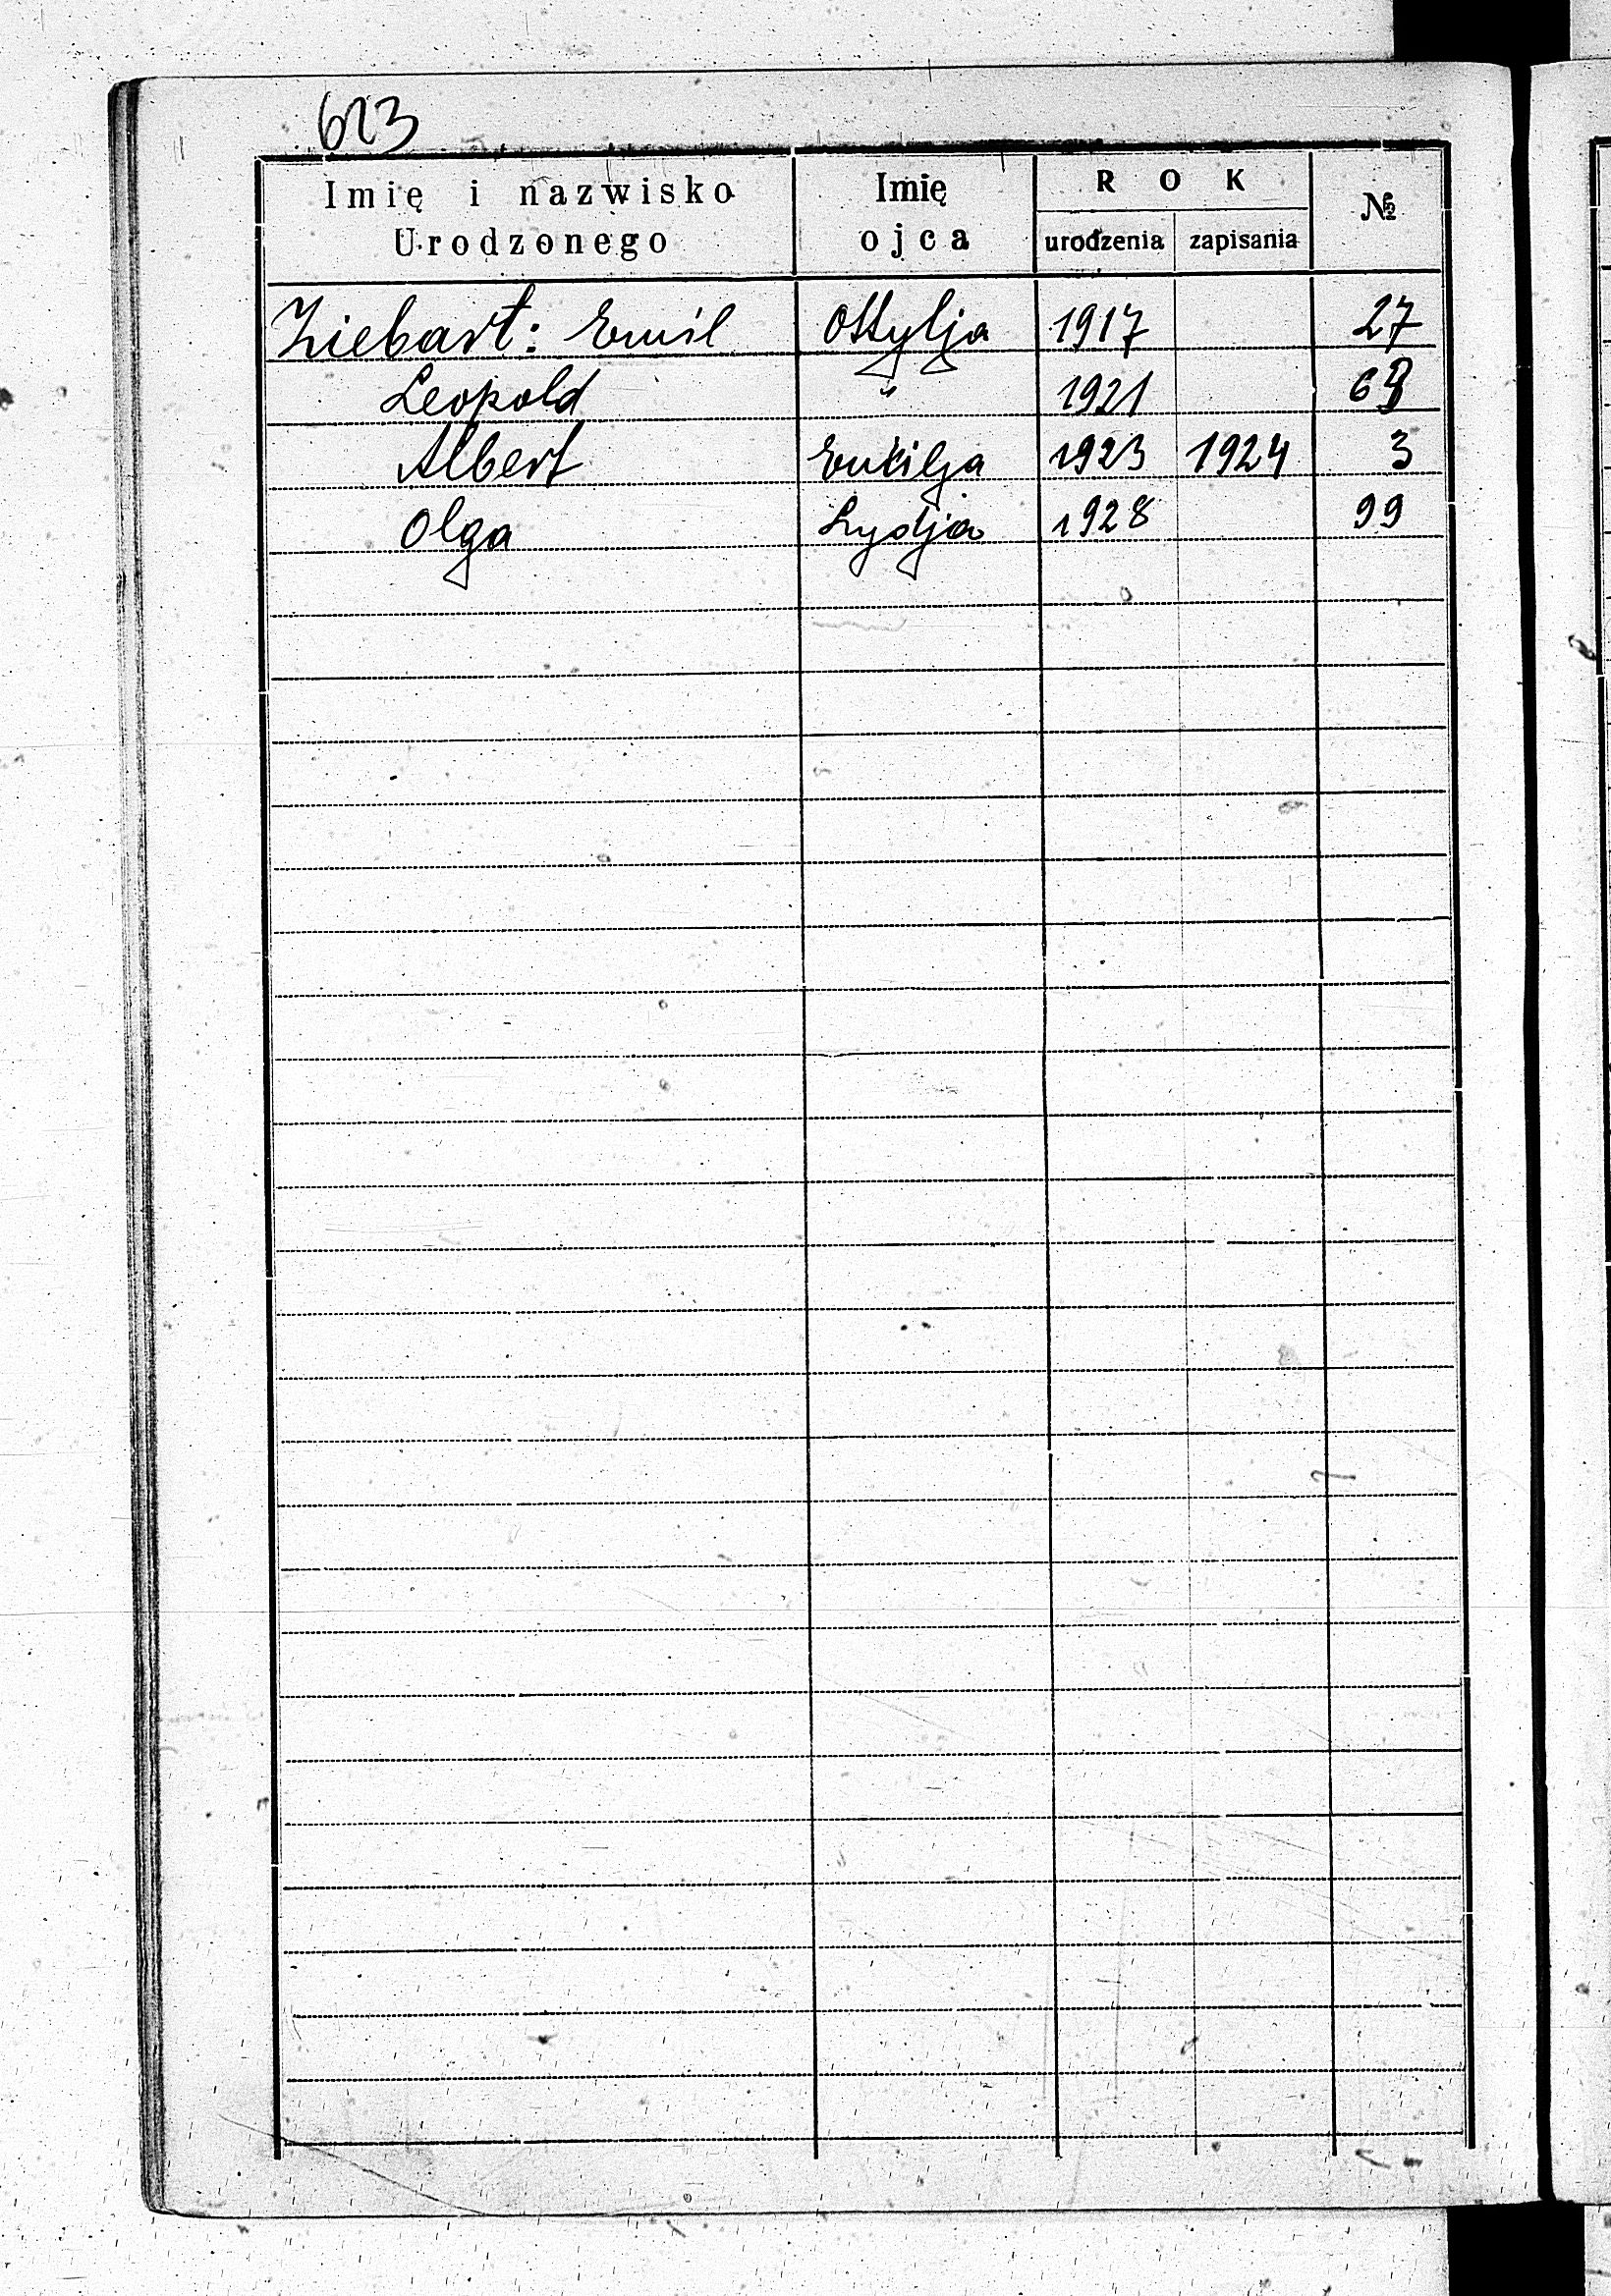 623
Imię i nazwisko Urodzonego | Imię ojca | ROK urodzenia | ROK zapisania | №
Ziebart: Emil | Ottylja | 1917 | | 27
Leopold | " | 1921 | |
Albert | Emilja | 1923 | 1924 | 3
Olga | Lydja | 1928 | | 99